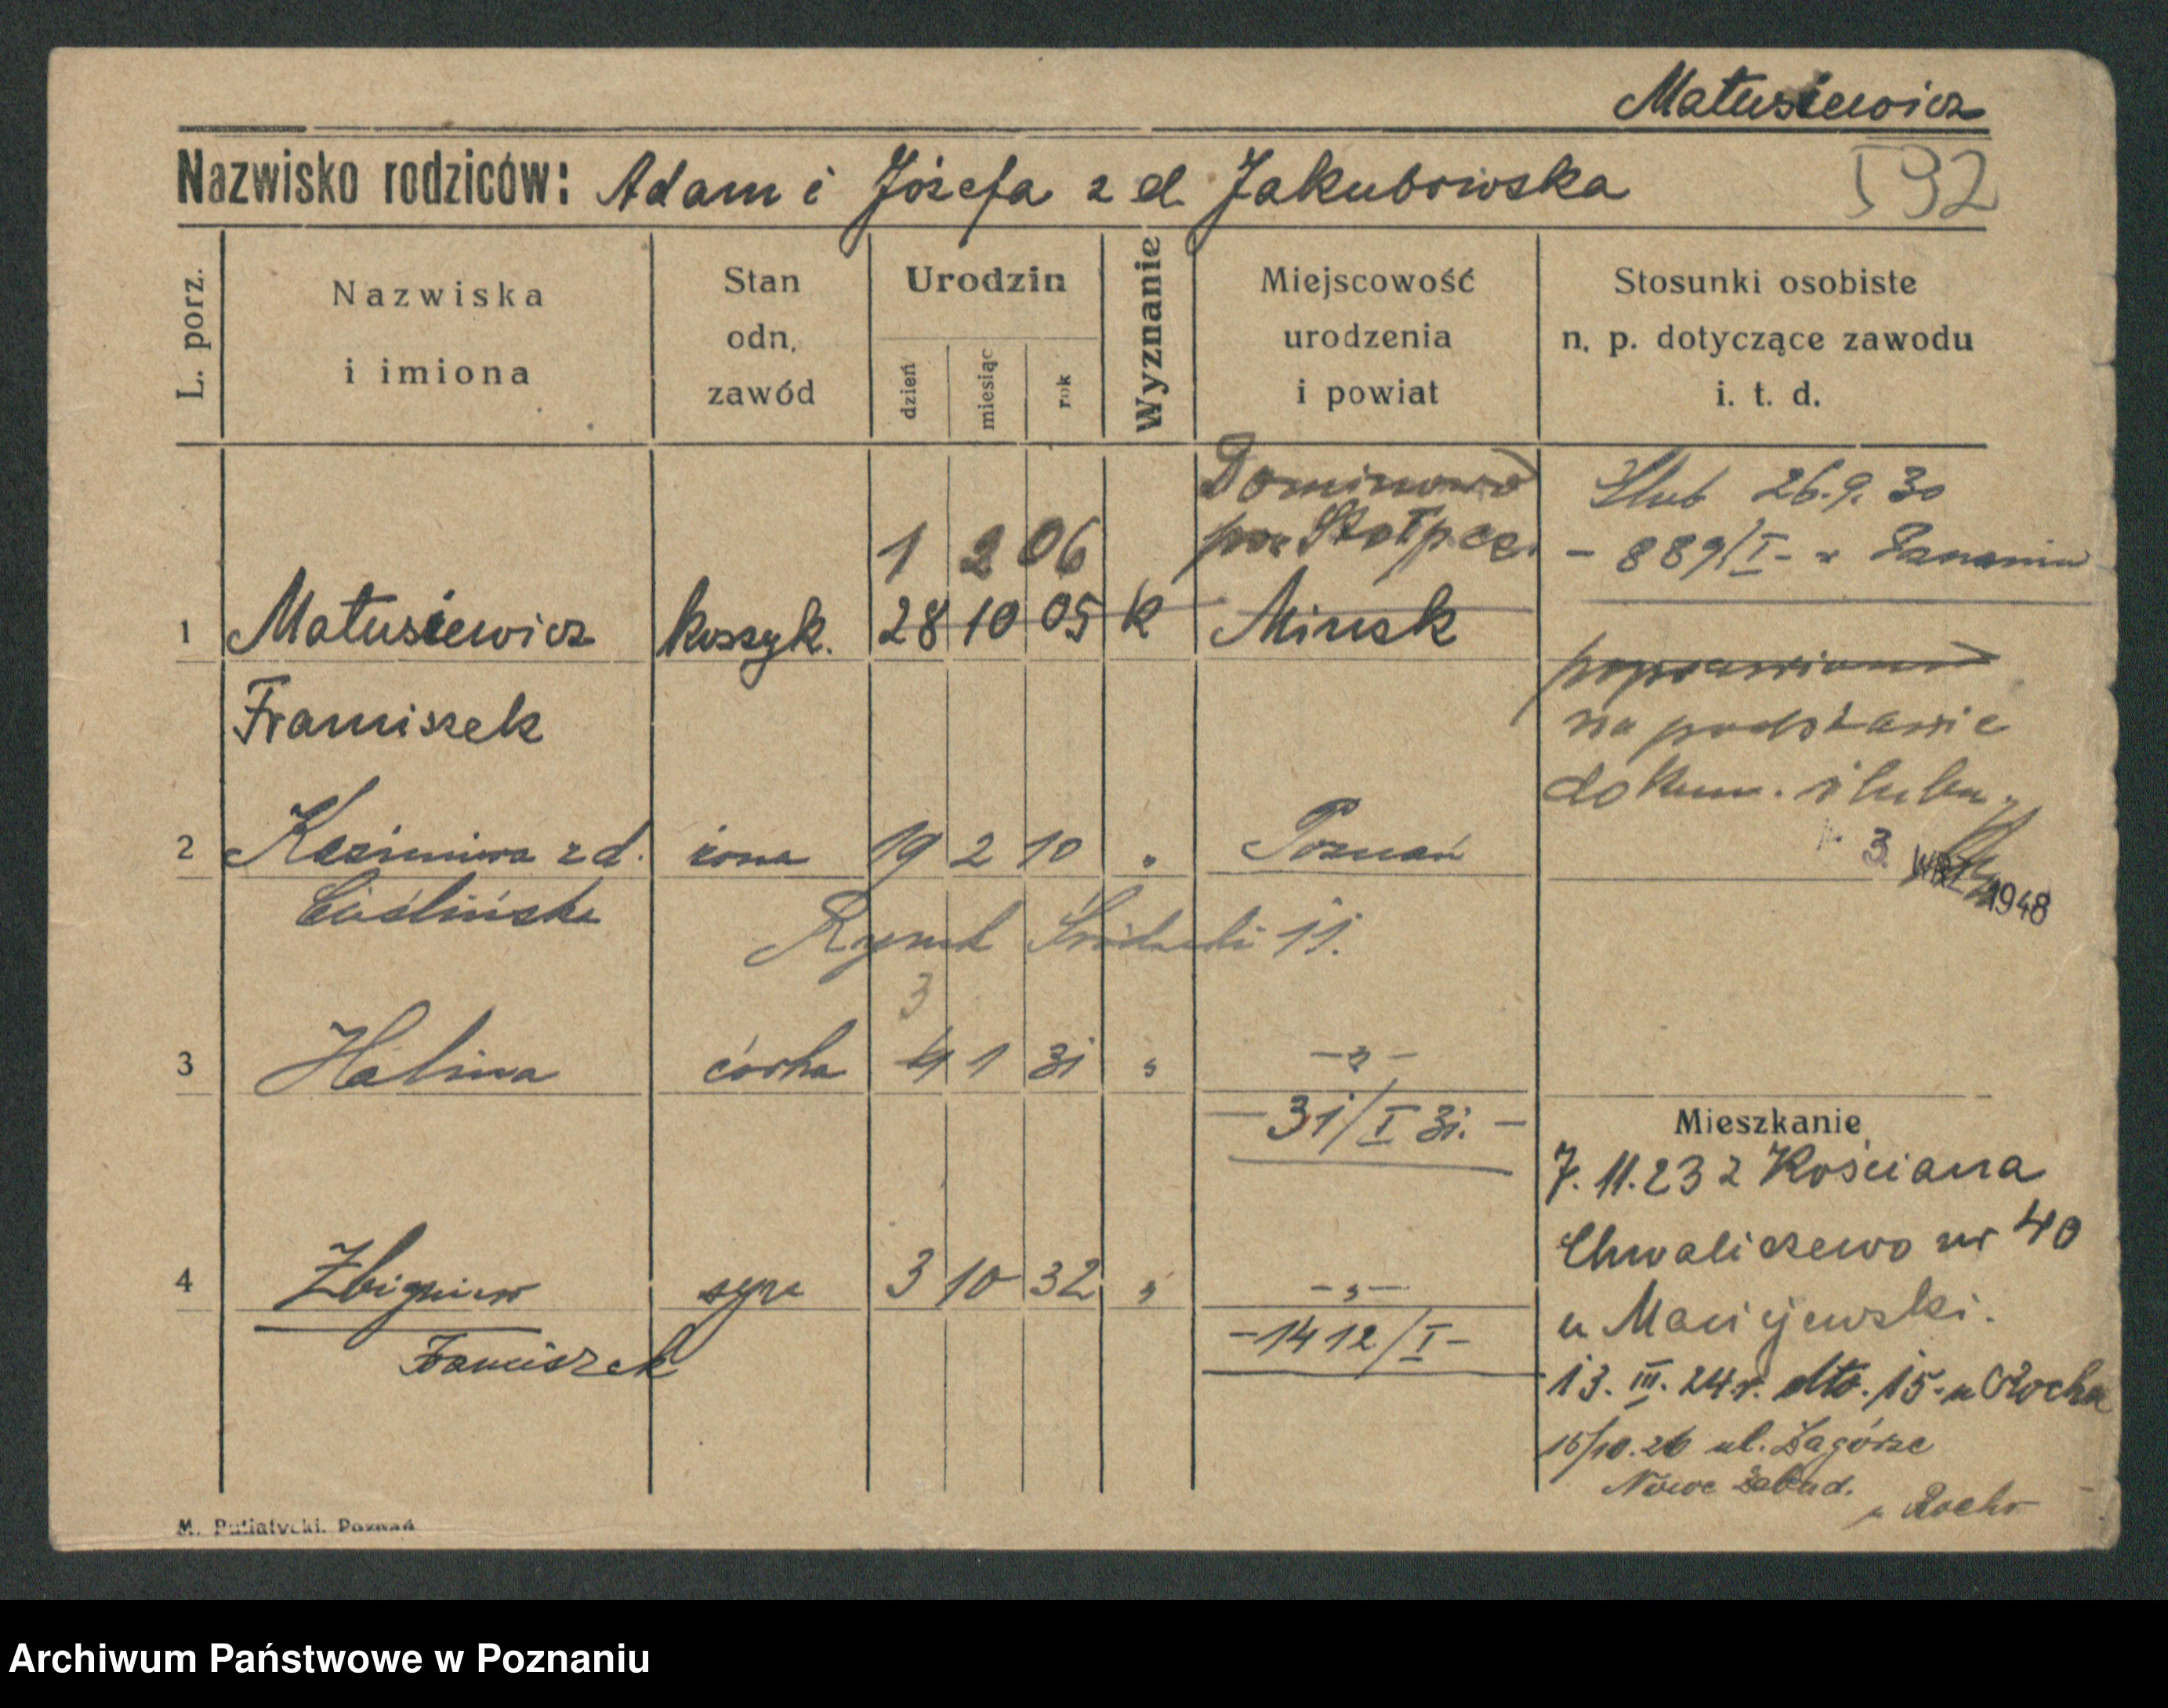 Matusiewicz
Nazwisko rodziców: Adam i Józefa z d. Jakubowska
592
L. porz.
Nazwiska
i imiona
Stan
odn.
zawód
Urodzin
dzień
miesiąc
rok
Wyznanie
Miejscowość
urodzenia
i powiat
Stosunki osobiste
n. p. dotyczące zawodu
i. t. d.
Dominowo
pow. Stołpce.
Ślub 26.9.30
- 889/I - w Poznaniu
1 2 06
1 Matusiewicz koszyk. 28 10 05 K Mińsk
Franciszek
poprawiono
na podstawie
dokum. ślubu
3. WRZ. 1948
2 Kazimiera z d. żona 19 2 10 " Poznań
Cieślińska
Rynek Śródecki 11.
3
3 Halina córka 4 1 31 " -"-
- 31/I 31. -
Mieszkanie
7.11.23 z Kościana
Chwaliszewo nr 40
u Maciejewski.
4 Zbigniew syn 3 10 32 " -"-
- 1412/I -
Franciszek
13. III. 24 r. dto. 15. u Rocha
15/10.26 ul. Zagórze
Nowe Zabud.
u Rochr
M. Putiatycki, Poznań
Archiwum Państwowe w Poznaniu